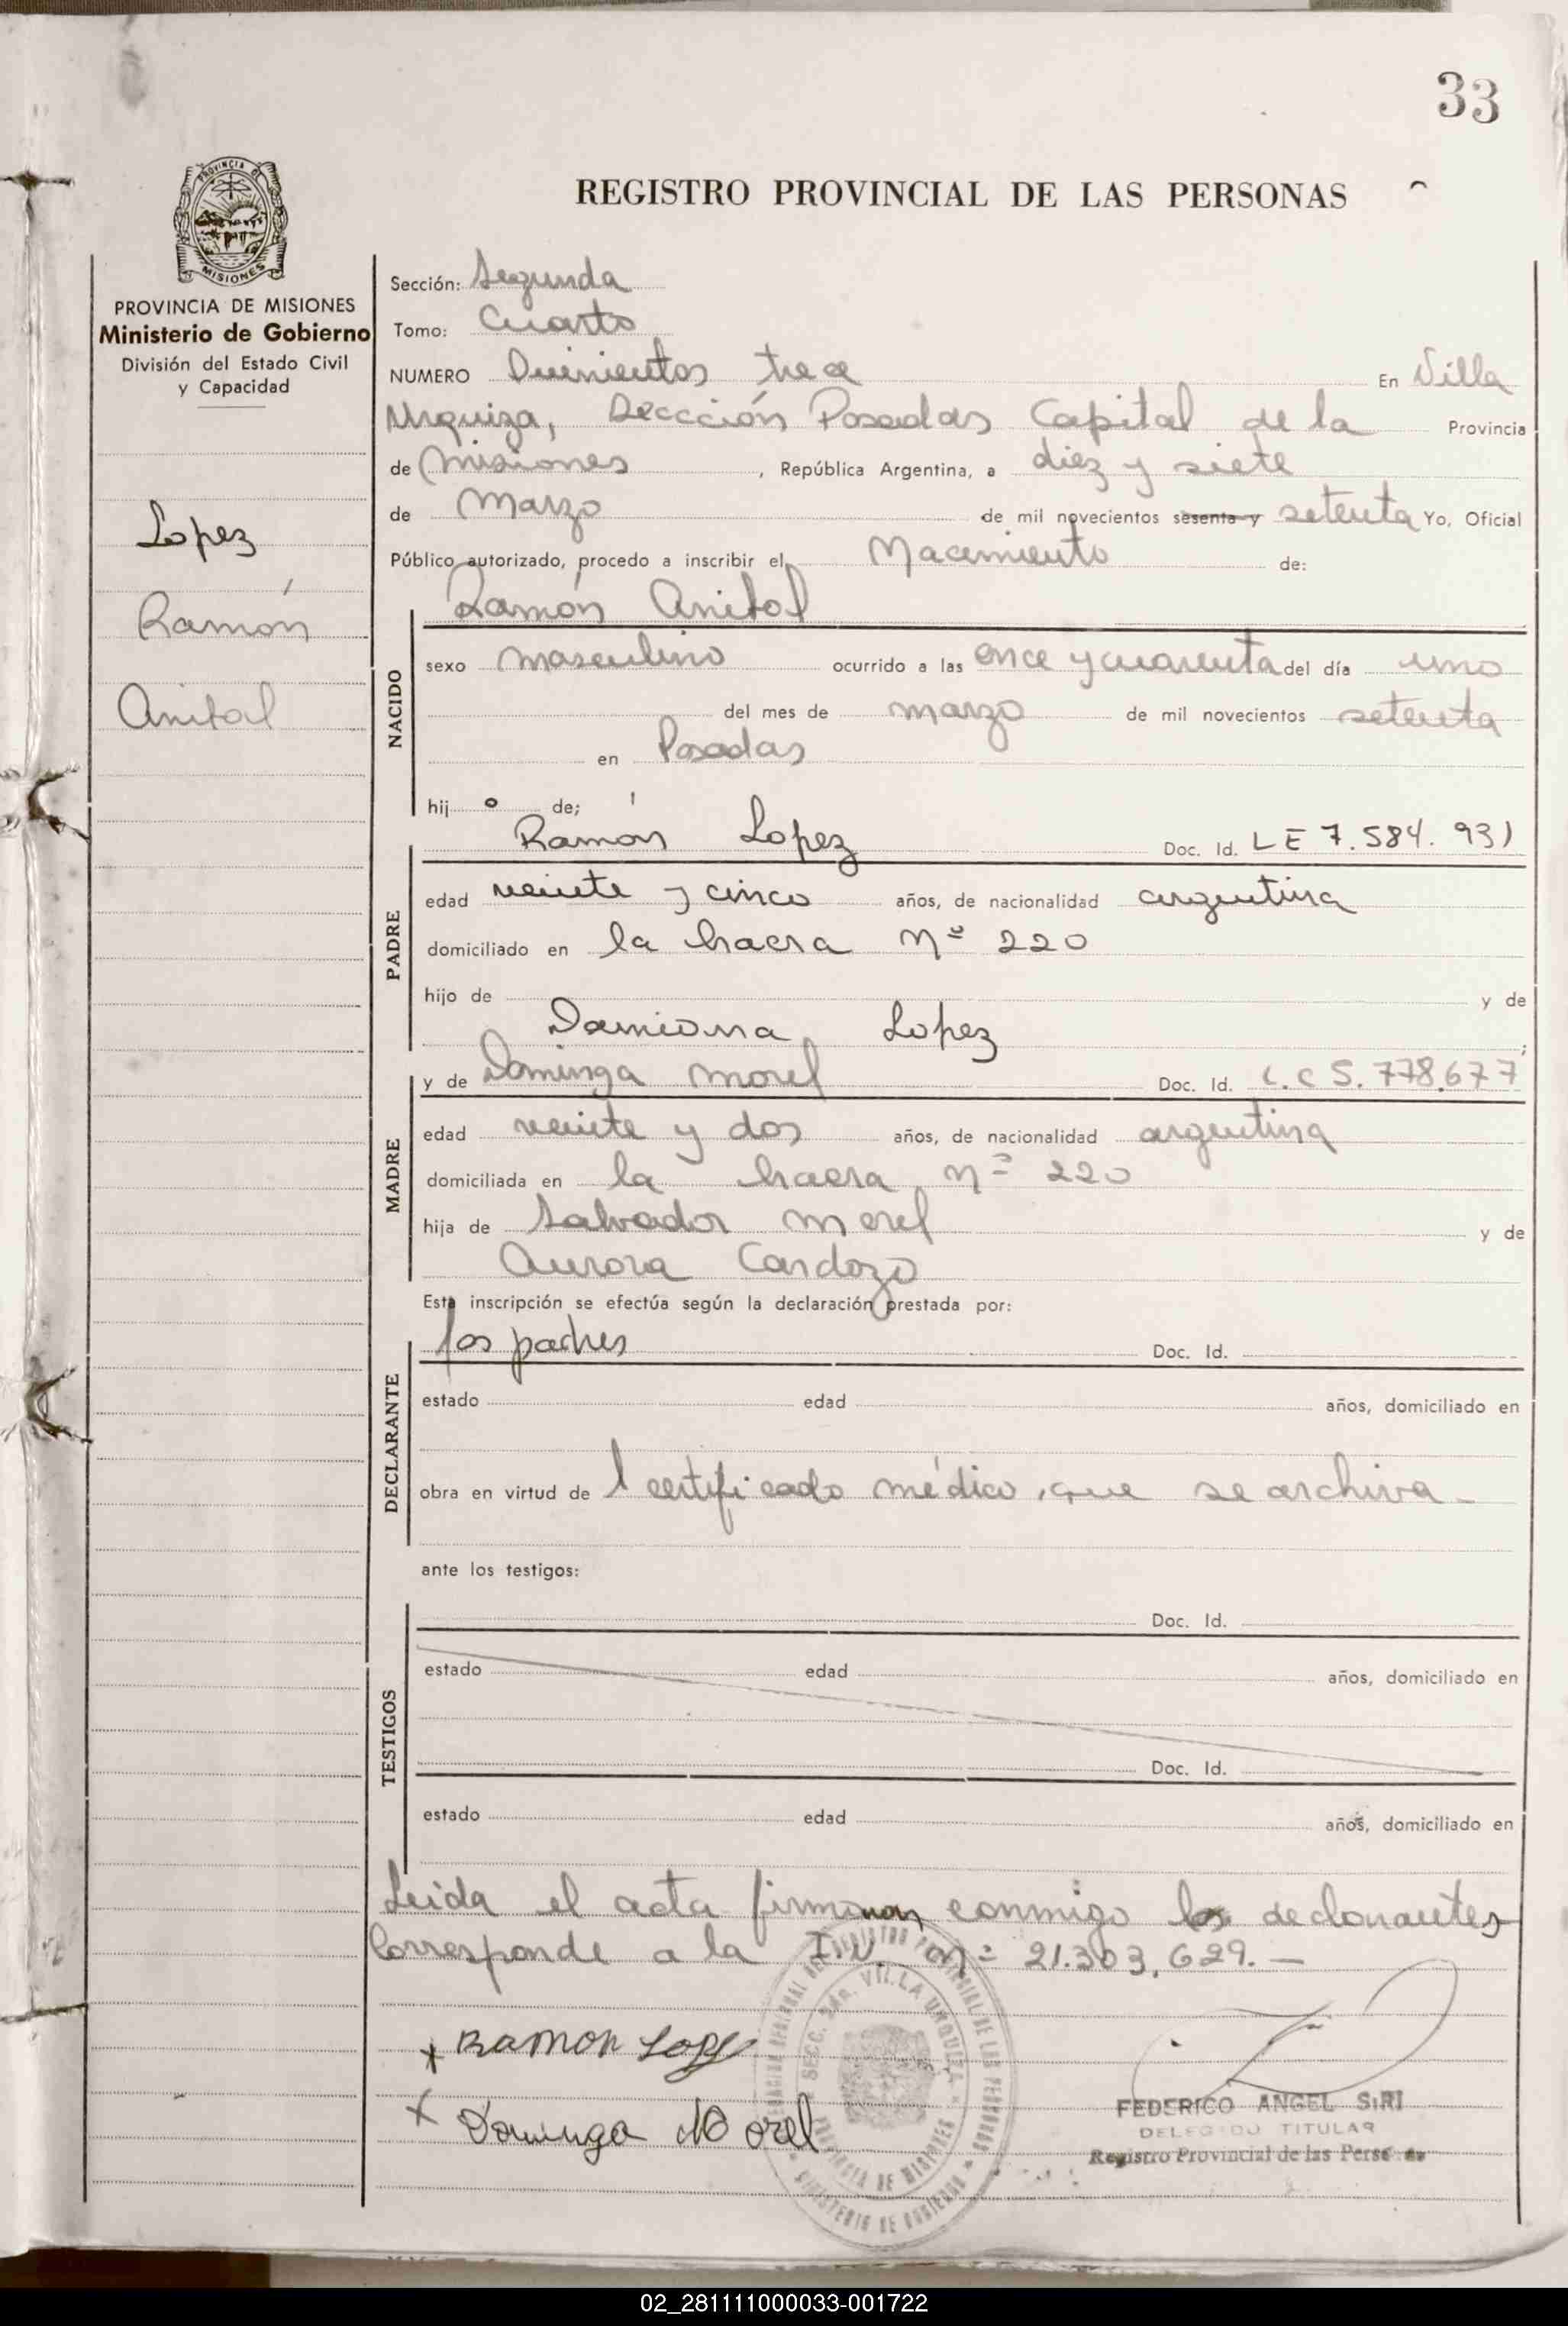 33
PROVINCIA DE
MISIONES
PROVINCIA DE MISIONES
Ministerio de Gobierno
División del Estado Civil
y Capacidad
Lopez
Ramón
Anibal
REGISTRO PROVINCIAL DE LAS PERSONAS
Sección: Segunda
Tomo: Cuarto
NUMERO Quinientos trece En Villa
Urquiza, Sección Posadas Capital de la Provincia
de Misiones, República Argentina, a diez y siete
de Marzo de mil novecientos sesenta y setenta Yo, Oficial
Público autorizado, procedo a inscribir el Nacimiento de:
Ramón Anibal
NACIDO
sexo masculino ocurrido a las once y cuarenta del día uno
del mes de marzo de mil novecientos setenta
en Posadas
hij o de;
Ramón Lopez Doc. Id. LE 7.584.931
PADRE
edad veinte y cinco años, de nacionalidad argentina
domiciliado en la chacra Nº 220
hijo de y de
Damiana Lopez ;
y de Dominga Morel Doc. Id. L.C 5.778.677
MADRE
edad veinte y dos años, de nacionalidad argentina
domiciliada en la chacra nº 220
hija de Salvador Morel y de
Aurora Cardozo
Esta inscripción se efectúa según la declaración prestada por:
los padres Doc. Id.
DECLARANTE
estado edad años, domiciliado en
obra en virtud de l certificado médico, que se archiva.-
ante los testigos:
Doc. Id.
TESTIGOS
estado edad años, domiciliado en
Doc. Id.
estado edad años, domiciliado en
Leída el acta firman conmigo los declarantes
Corresponde a la I.N. nº 21.303.629.-
x Ramon Lopez
x Dominga Morel
SECC. VILLA URQUIZA
PROVINCIA DE MISIONES
MINISTERIO DE GOBIERNO
FEDERICO ANGEL SIRI
DELEGADO TITULAR
Registro Provincial de las Personas
02_281111000033-001722